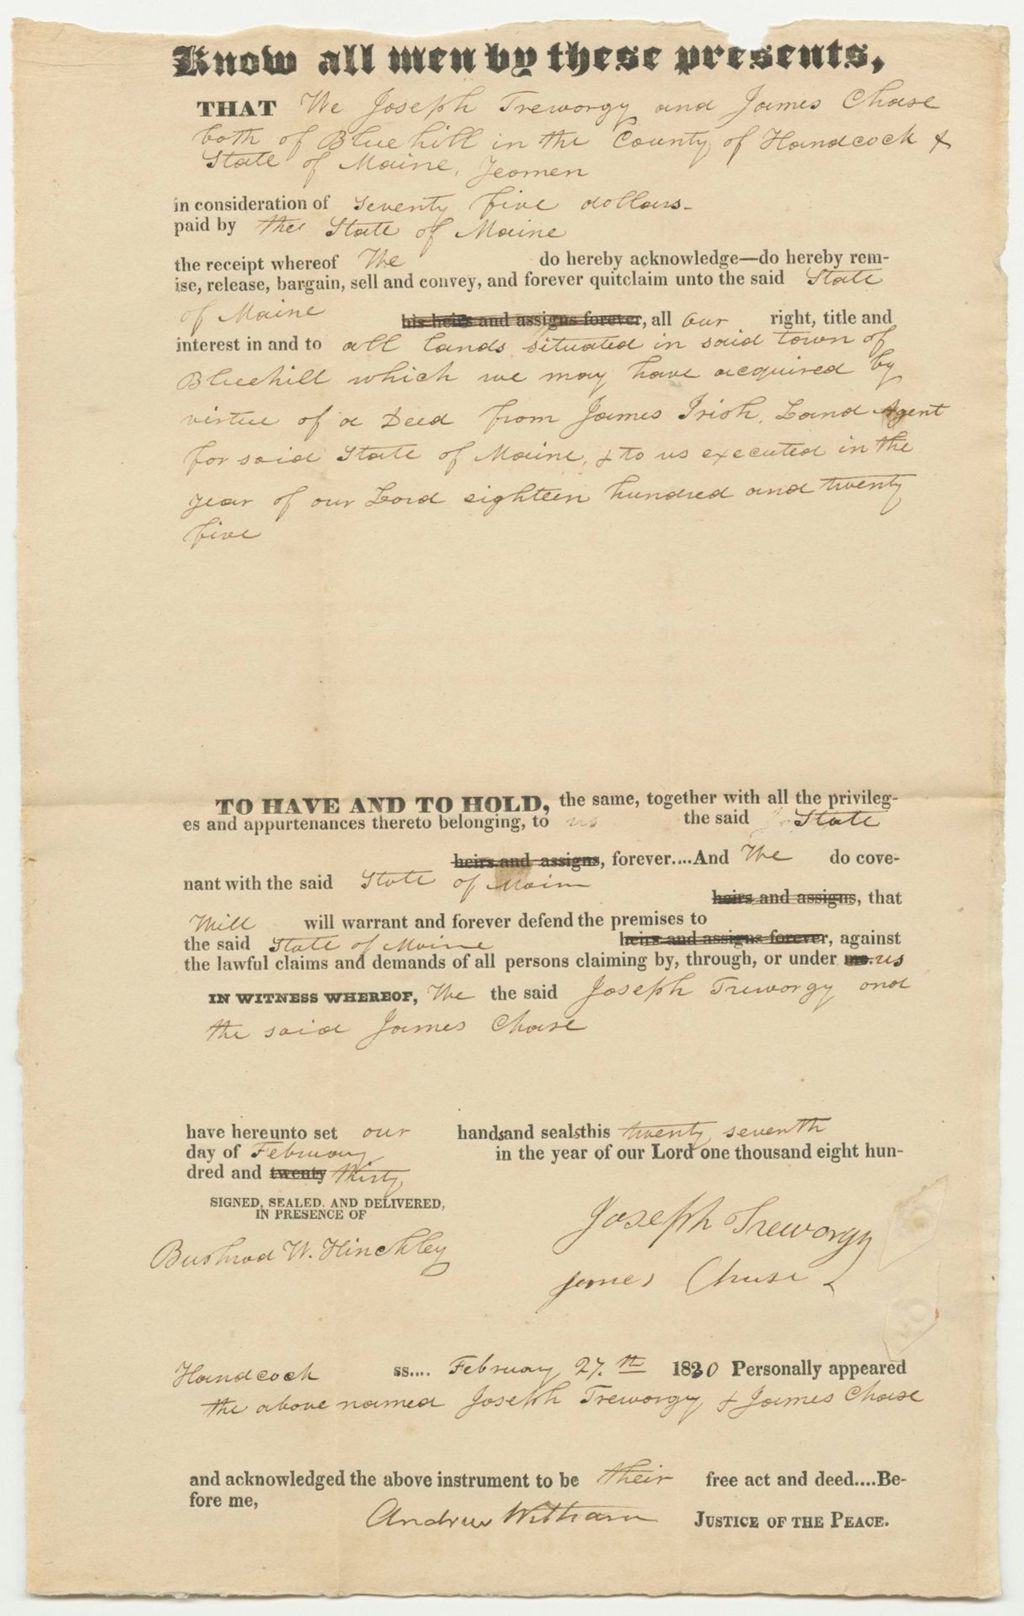 Know all men by these presents,
THAT We Joseph Treworgy and James Chase
both of Bluehill in the County of Handcock &
State of Maine, Yeomen
in consideration of seventy five dollars-
paid by the State of Maine
the receipt whereof We do hereby acknowledge—do hereby rem-
ise, release, bargain, sell and convey, and forever quitclaim unto the said State
of Maine
his heirs and assigns forever, all our right, title and
interest in and to all lands situated in said town of
Bluehill which we may have acquired by
virtue of a Deed from James Irish, Land Agent
for said State of Maine, & to us executed in the
year of our Lord eighteen hundred and twenty
five
TO HAVE AND TO HOLD, the same, together with all the privileg-
es and appurtenances thereto belonging, to us the said State
heirs and assigns, forever....And We do cove-
nant with the said State of Maine
heirs and assigns, that
Will will warrant and forever defend the premises to
the said State of Maine heirs and assigns forever, against
the lawful claims and demands of all persons claiming by, through, or under me. us
IN WITNESS WHEREOF, We the said Joseph Treworgy and
the said James Chase
have hereunto set our hands and seals this twenty seventh
day of February in the year of our Lord one thousand eight hun-
dred and twenty thirty
SIGNED, SEALED, AND DELIVERED,
IN PRESENCE OF
Joseph Treworgy
Bushrod W. Hinckley
James Chase
Handcock ss.... February 27.th 1830 Personally appeared
the above named Joseph Treworgy & James Chase
and acknowledged the above instrument to be their free act and deed....Be-
fore me,
Andrew Witham JUSTICE OF THE PEACE.